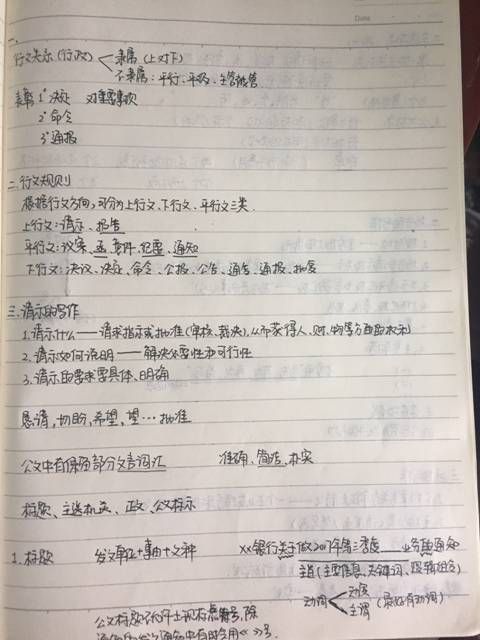 Date
一.
行文关系(行政) 隶属(上对下)
不隶属:平行:平级、主管被管
表彰 1° 决定 对重要事项
2° 命令
3° 通报
二.行文规则
根据行文方向,可分为上行文、下行文、平行文三类.
上行文:请示、报告
平行文:议案、函、意见、纪要、通知
下行文:决议、决定、命令、公报、公告、通告、通报、批复
三.请示的写作
1.请示什么——请求指示或批准(审核、裁决),从而获得人、财、物等方面的支持
2.请示如何说明——解决必要性和可行性
3.请示的要求要具体、明确
恳请,切盼,希望,望…批准
公文中有保留部分文言词汇 准确、简洁、朴实
标题、主送机关、正文、公文标示
1.标题 发文单位+事由+文种 xx银行关于做2017年第三季度 业务 通知
主旨(主要信息,关键词、 组合)
动词 动宾
主谓 (最好有动词)
公文标题 标点符号,除